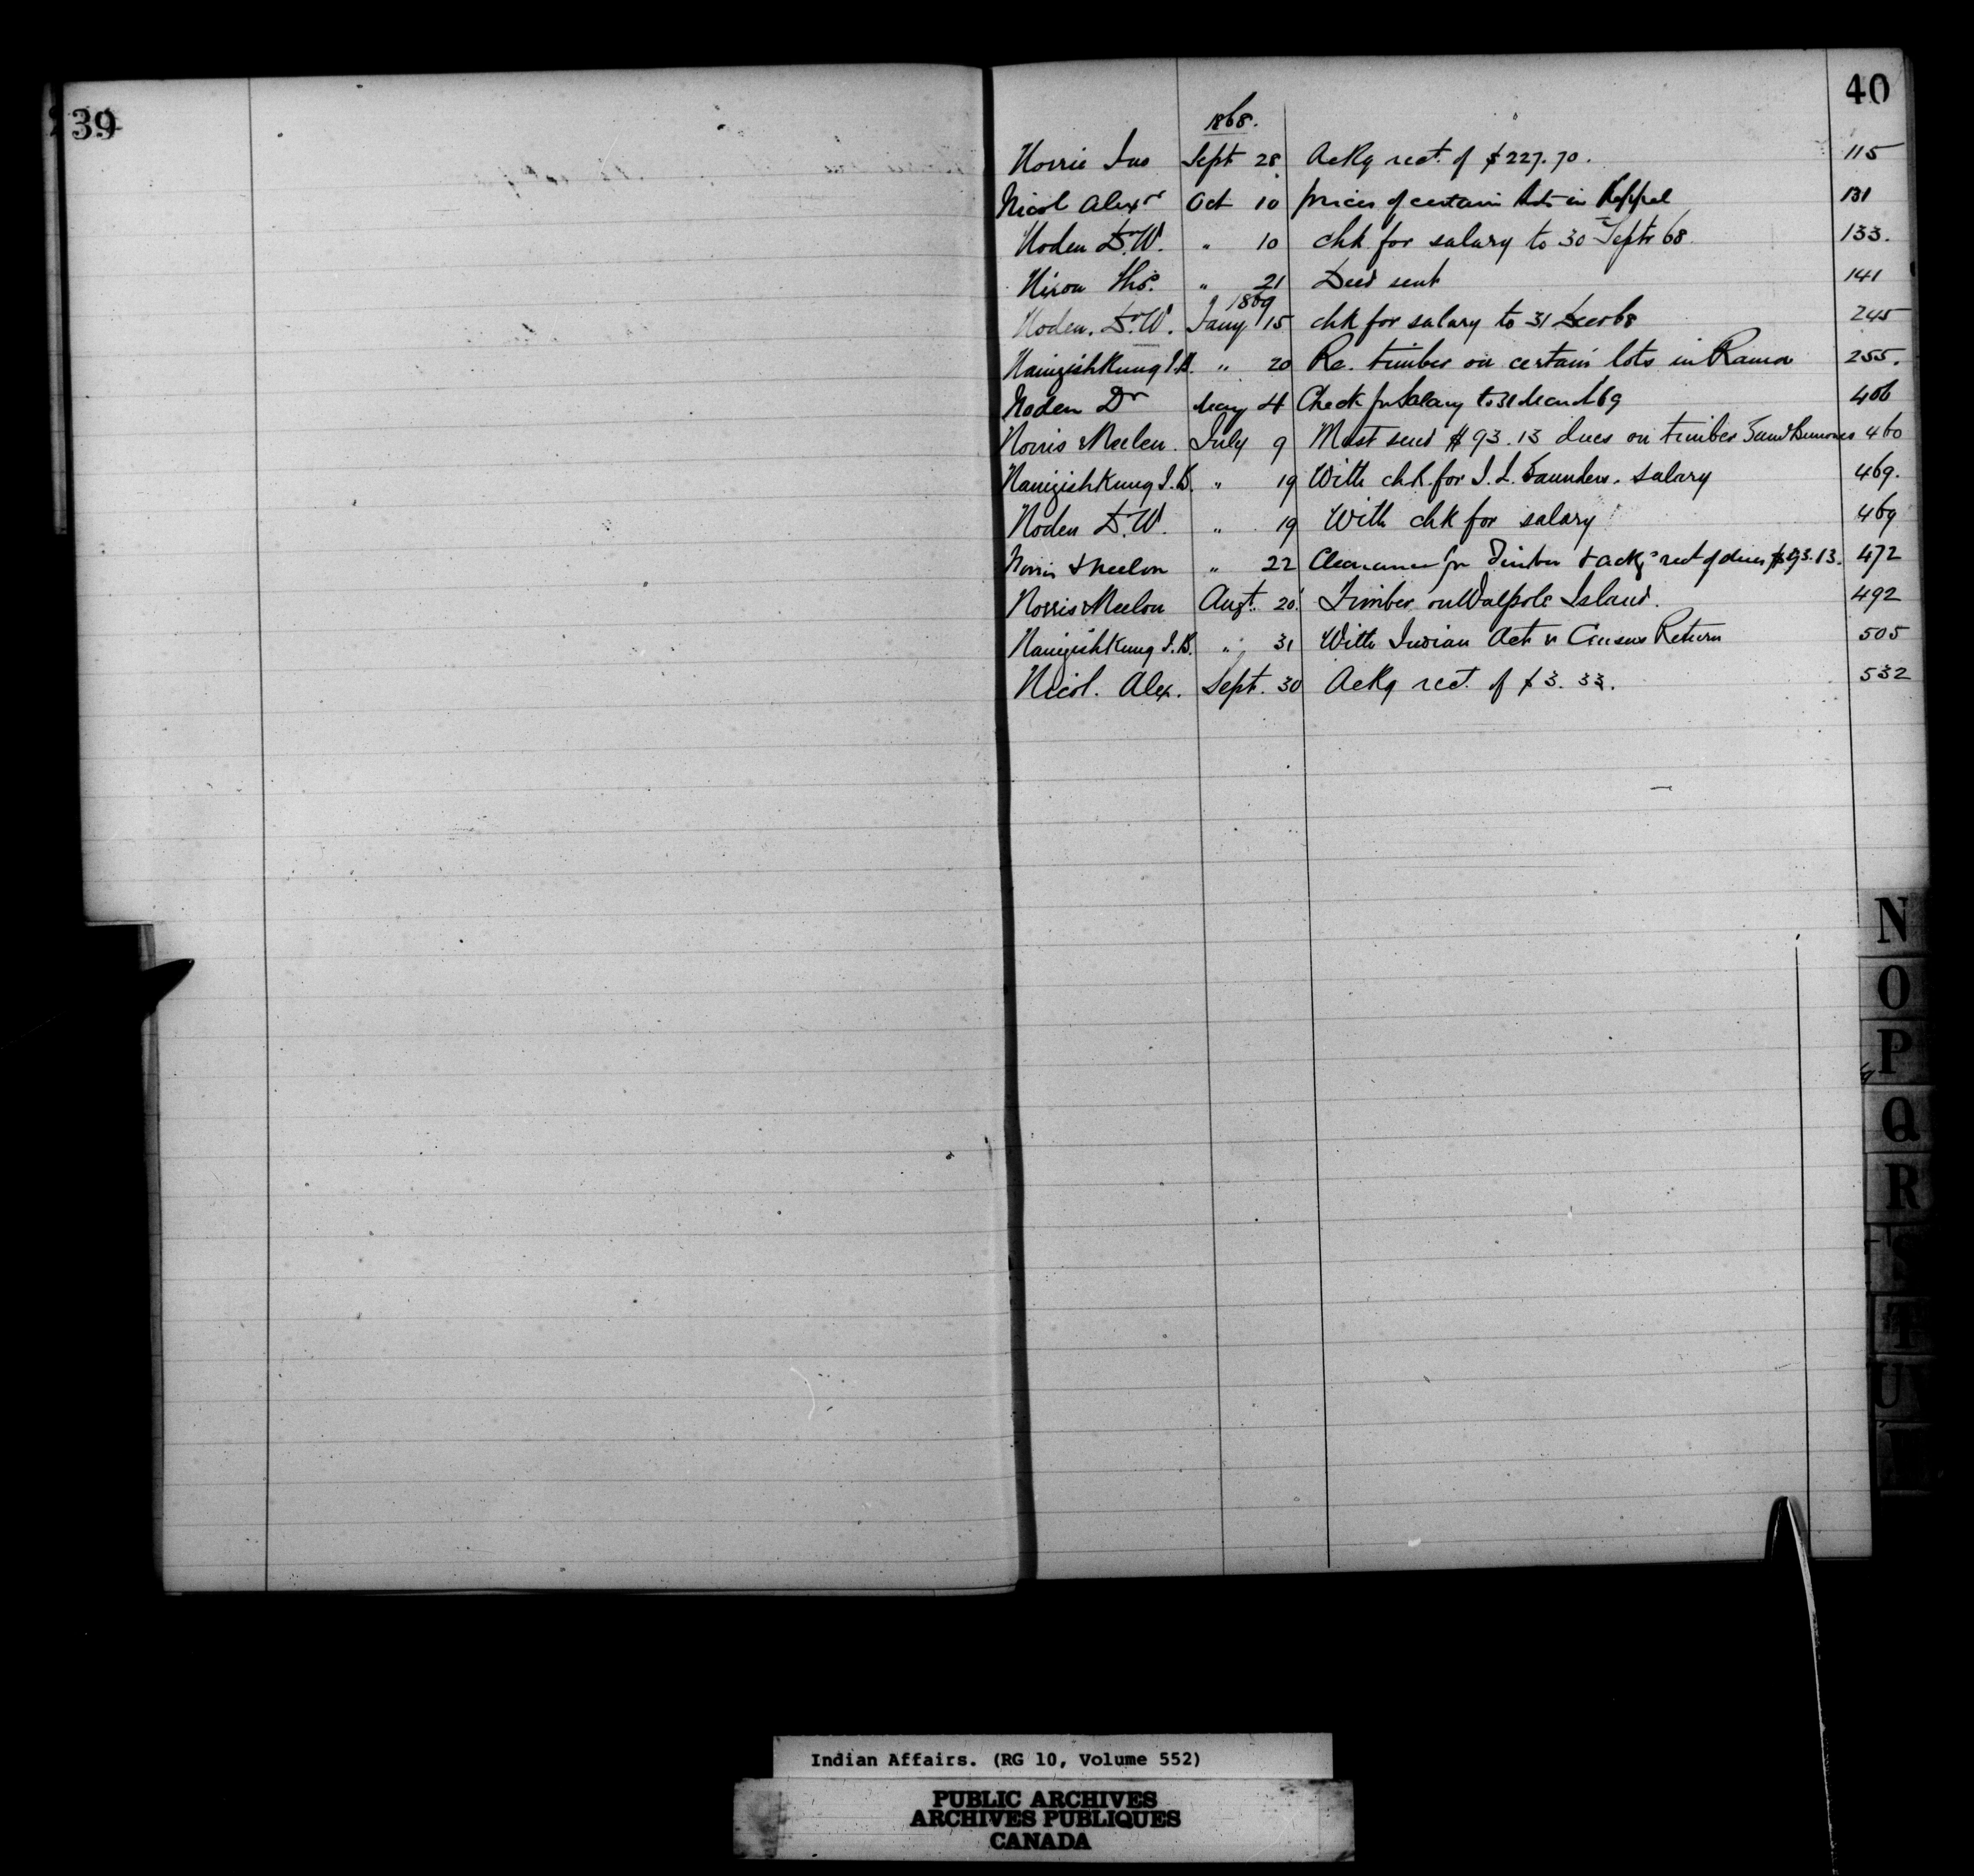 39
40
1868.
Norrie Jno Sept 28 Ackg rect. of $227.70. 115
Nicol Alexr Oct 10 prices of certain lots in Keppel 131
Noden Dr. W. " 10 chk for salary to 30 Septr 68 133.
Nixon Thos. " 21 Deed sent 141
1869
Noden. Dr. W. Jany 15 chk for salary to 31 Decr 68 245
Nainigishkung J.B. " 20 Re. timber on certain lots in Rama 255.
Noden Dr May 4 Check for Salary to 31 March 69 406
Norris & Neelon. July 9 Must send $93.13 dues on timber 460
Nanigishkung J.B. " 19 With chk. for J. L. Saunders. salary 469.
Noden Dr. W. " 19 With chk for salary 469
Norris & Neelon " 22 Clearance for Timber & ackg rect of dues $93.13. 472
Norris & Neelon Augt. 20 Timber on Walpole Island. 492
Nanigishkung J.B. " 31 With Indian Act & Census Return 505
Nicol. Alex. Sept. 30 Ackg rect. of $3.33. 532
N
O
P
Q
R
T
U
Indian Affairs. (RG 10, Volume 552)
PUBLIC ARCHIVES
ARCHIVES PUBLIQUES
CANADA